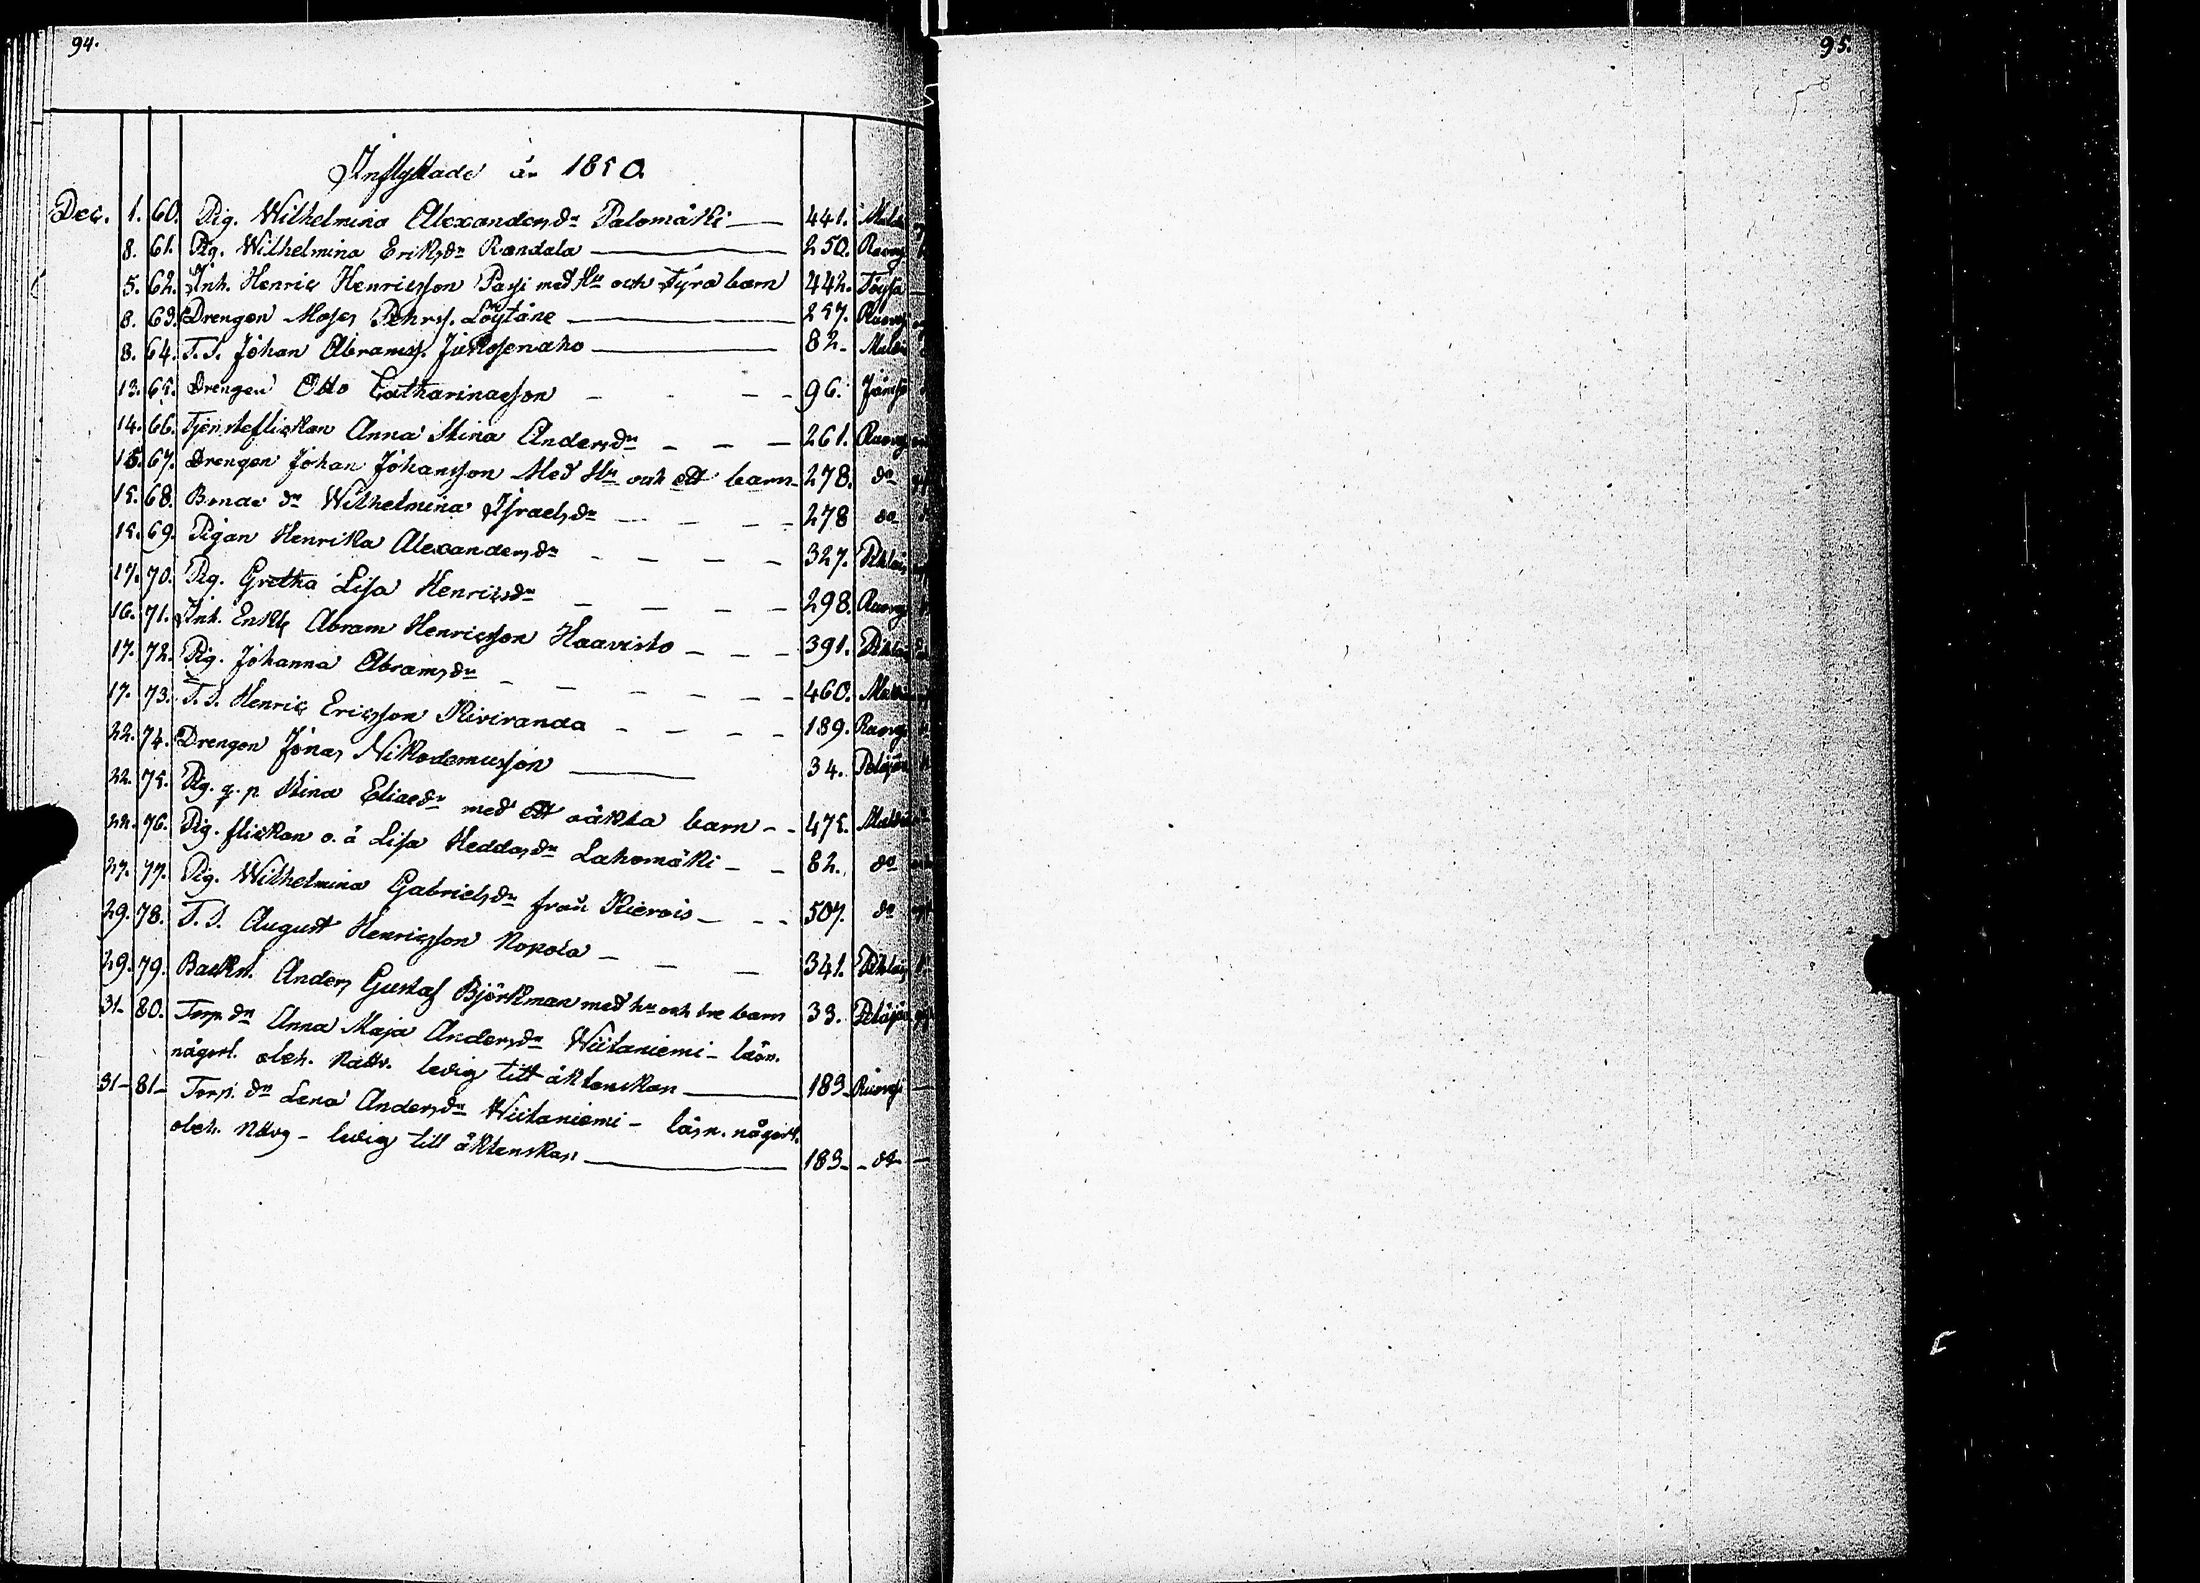 94.
95.
Inflyttade år 1850.
Dec. 1. 60. Pig. Wilhelmina Alexandersdr Palomäki 441.
8. 61. Pig. Wilhelmina Eriksdr Randala 250. Ruov
5. 62. Inh. Henric Henricsson Passi med Hu och Fyra barn 442. Töysä
8. 63. Drengen Moses Pehrss. Löytäne 257. Ruov
8. 64. T.S. Johan Abramss. Jukosenaho 82.
13. 65. Drengen Otto Catharinasson 96. Jämsä
14. 66. Tjensteflickan Anna Stina Andersdr 261. Ruov
15. 67. Drengen Johan Johansson Med Hu och ett barn 278. do
15. 68. Bonde dr Wilhelmina Israelsdr 278 do
15. 69. Pigan Henrika Alexandersdr 327. Pihlaj
17. 70. Pig. Gretha Lisa Henricsdr 298. Ruov
16. 71. Inh. Enkl Abram Henricsson Haavisto 391. Pihlaj
17. 72. Pig. Johanna Abramsdr 460.
17. 73. T.S. Henric Ericsson Kiviranda 189. Ruov
22. 74. Drengen Jonas Nikodemusson 34. Petäjäv
22. 75. Pig. q.p. Stina Eliaedr med ett oäkta barn 475.
22. 76. Pig. flickan o.ä Lisa Heddasdr Lahomäki 82. do
27. 77. Pig. Wilhelmina Gabrielsdr från Kierois 507. do
29. 78. T.S. August Henricsson Kopola 341. Pihlaj
29. 79. Backst. Anders Gustaf Björkman med hu och tre barn 33. Petäjäv
31. 80. Torp. dr Anna Maja Andersdr Wiitaniemi - läsn.
någorl. obeh. Nattv. ledig till äktenskap 183. Ruovesi
31. 81. Torp. dr Lena Andersdr Wiitaniemi - läsn. någorl.
obeh. Nttvg - ledig till äktenskap 183. do